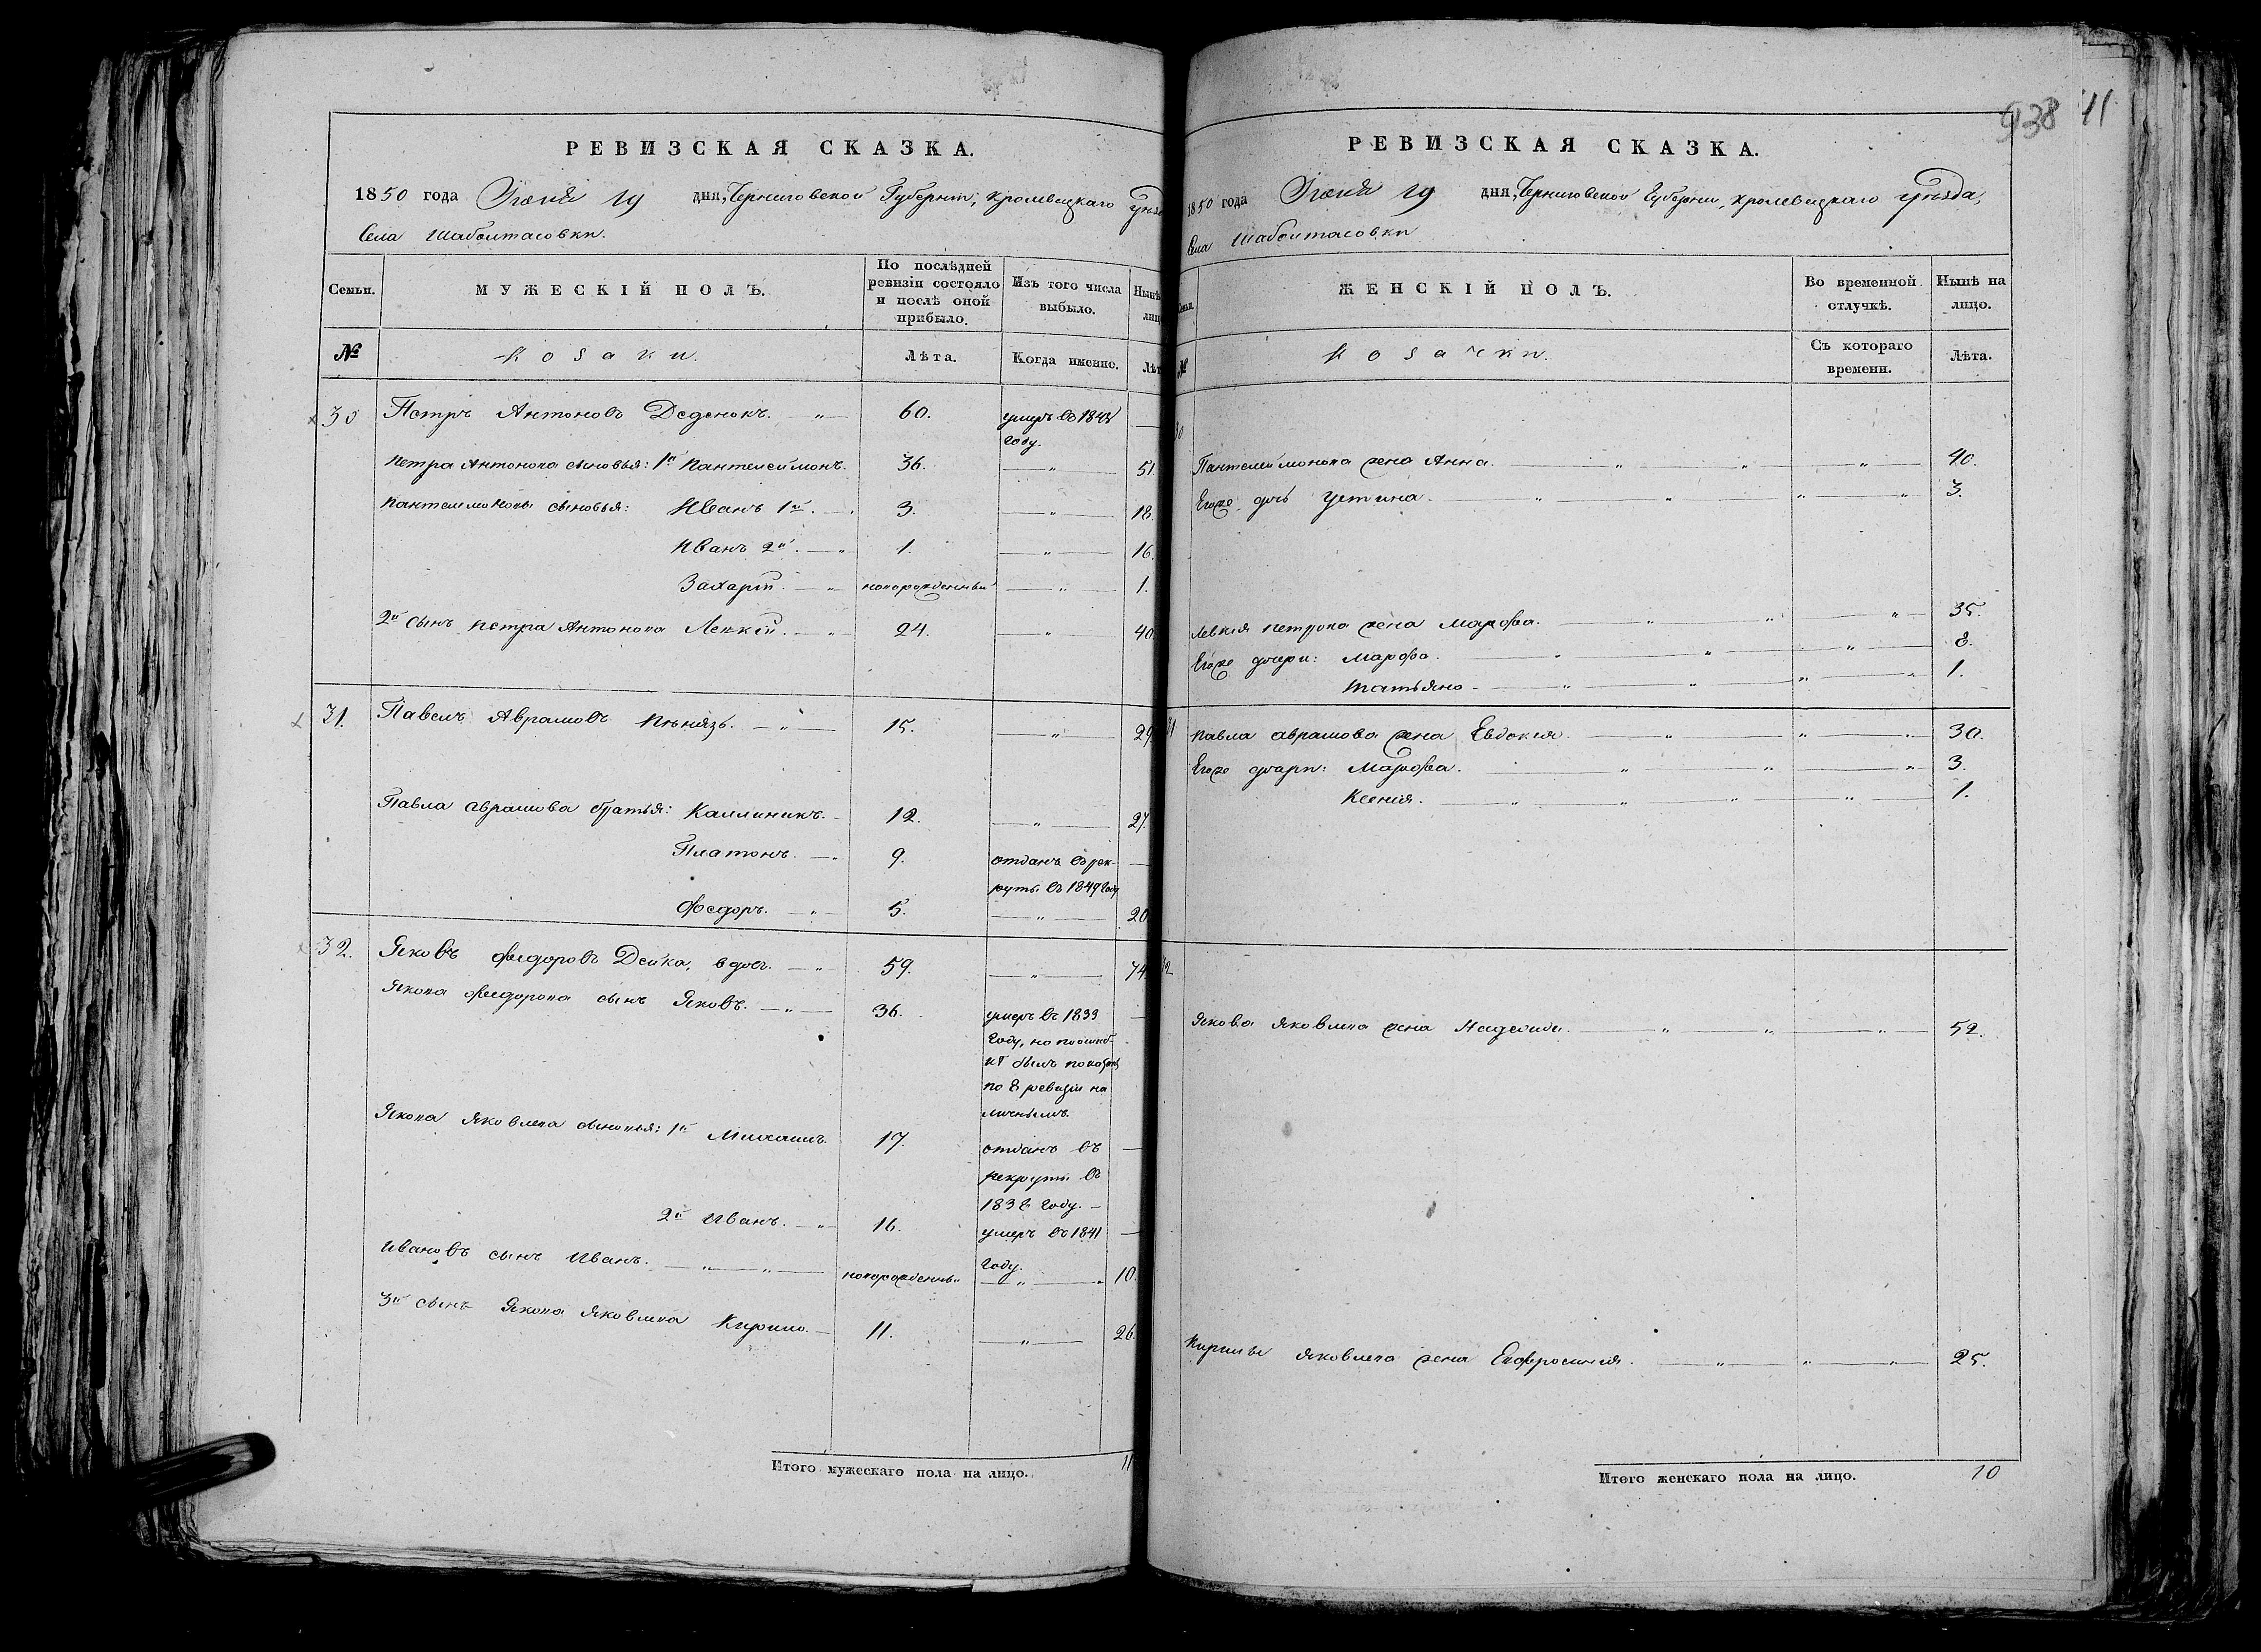 РЕВИЗСКАЯ СКАЗКА.
1850 года Іюня 19 дня, Черниговской Губерніи, Кролевецкаго Уѣзда
Села Шабалтасовки.
Семьи. МУЖЕСКІЙ ПОЛЪ. По послѣдней ревизіи состояло и послѣ оной прибыло. Изъ того числа выбыло. Нынѣ лиц
№ Козаки. Лѣта. Когда именно. Лѣт
30 Петръ Антоновъ Деденокъ. 60. умеръ въ
году.
Петра Антонова сыновья: 1й Пантелеймонъ. 36. 51.
Пантелимоновы сыновья: Иванъ 1й. 3. 18.
Иванъ 2й. 1. 16.
Захарій. новорожденный 1.
2й сынъ Петра Антонова Левкій. 24. 40
31. Павелъ Аврамовъ Кнѣязь. 15. 29
Павла Аврамова братья: Каллиникъ. 12. 27.
Платонъ. 9. отданъ въ рек-
руты въ 1849 году
Федоръ. 5. 20.
32. Яковъ Федоровъ Дейка, вдов. 59. 74
Якова Федорова сынъ Яковъ. 36. умеръ въ 1833
году, но по ошиб-
кѣ былъ показанъ
по 8 ревизіи на
личнымъ.
Якова Яковлева сыновья: 1й Михаилъ. 17. отданъ въ
рекруты въ
1838 году.
2й Иванъ. 16. умеръ въ 1841
году.
Ивановъ сынъ Иванъ. новорожденны 10.
3й сынъ Якова Яковлева Кирило. 11. 26.
Итого мужескаго пола на лицо. 11
938 11
РЕВИЗСКАЯ СКАЗКА.
1850 года Іюня 19 дня, Черниговской Губерніи, Кролевецкаго Уѣзда,
Села Шабалтасовки
Семьи. ЖЕНСКІЙ ПОЛЪ. Во временной отлучкѣ. Нынѣ на лицо.
№ Козачки. Съ котораго времени. Лѣта.
30
Пантелеймонова жена Анна. 40.
Егоже дочь Устина. 3.
Левкія Петрова жена Марфа. 35.
Егоже дочери: Марфа. 8.
Татьяна 1.
31 Павла Аврамова жена Евдокія 30.
Егоже дочери: Марфа. 3.
Ксенія. 1.
32
Якова Яковлева жена 52.
Кирилы Яковлева жена Ефросинія. 25.
Итого женскаго пола на лицо. 10